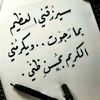 سيرزقني العظيم
بما رجوت .. ويكرمني
الكريم بحسن ظني .